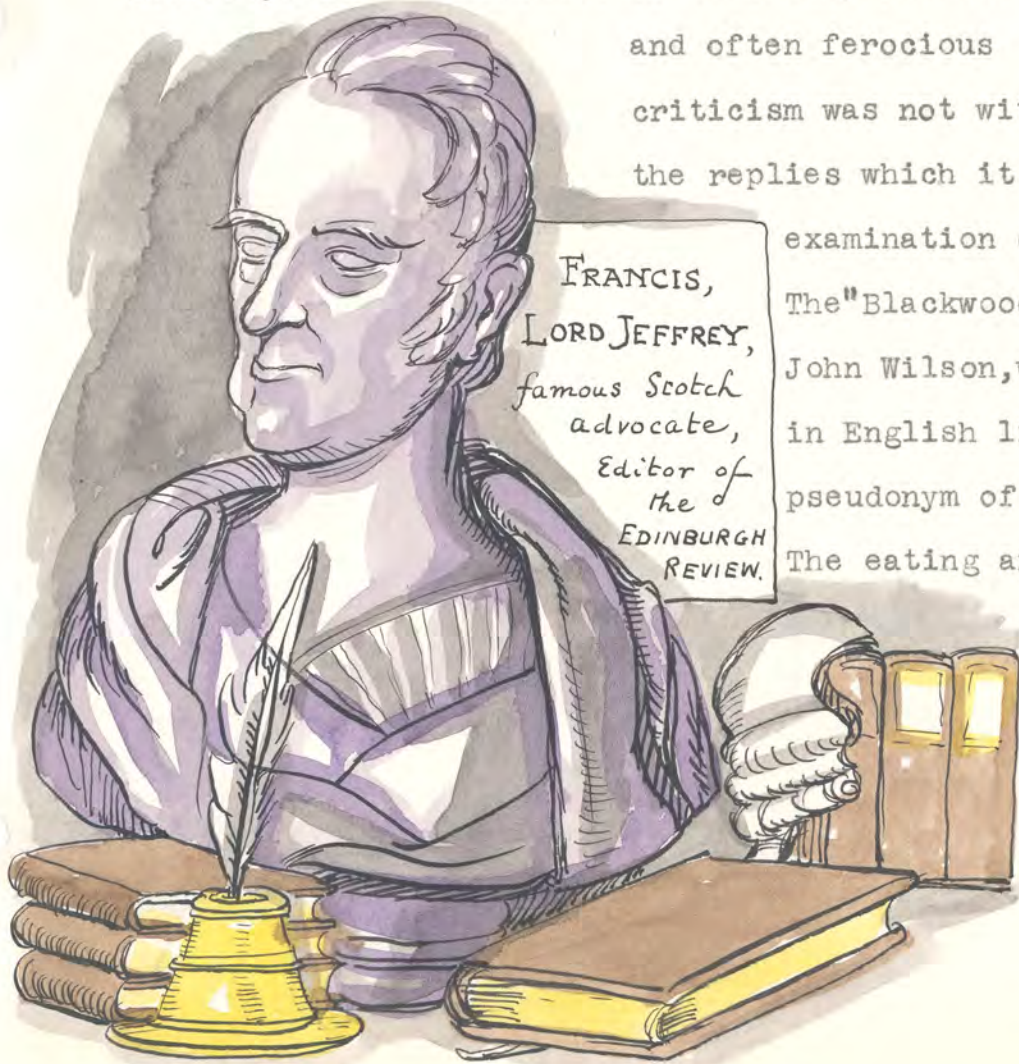 and often ferocious
criticism was not wi
the replies which it
examination
The"Blackwoo
John Wilson,
in English li
pseudonym of
The eating a
FRANCIS,
LORD JEFFREY,
famous Scotch
advocate,
Editor of
the
EDINBURGH
REVIEW.